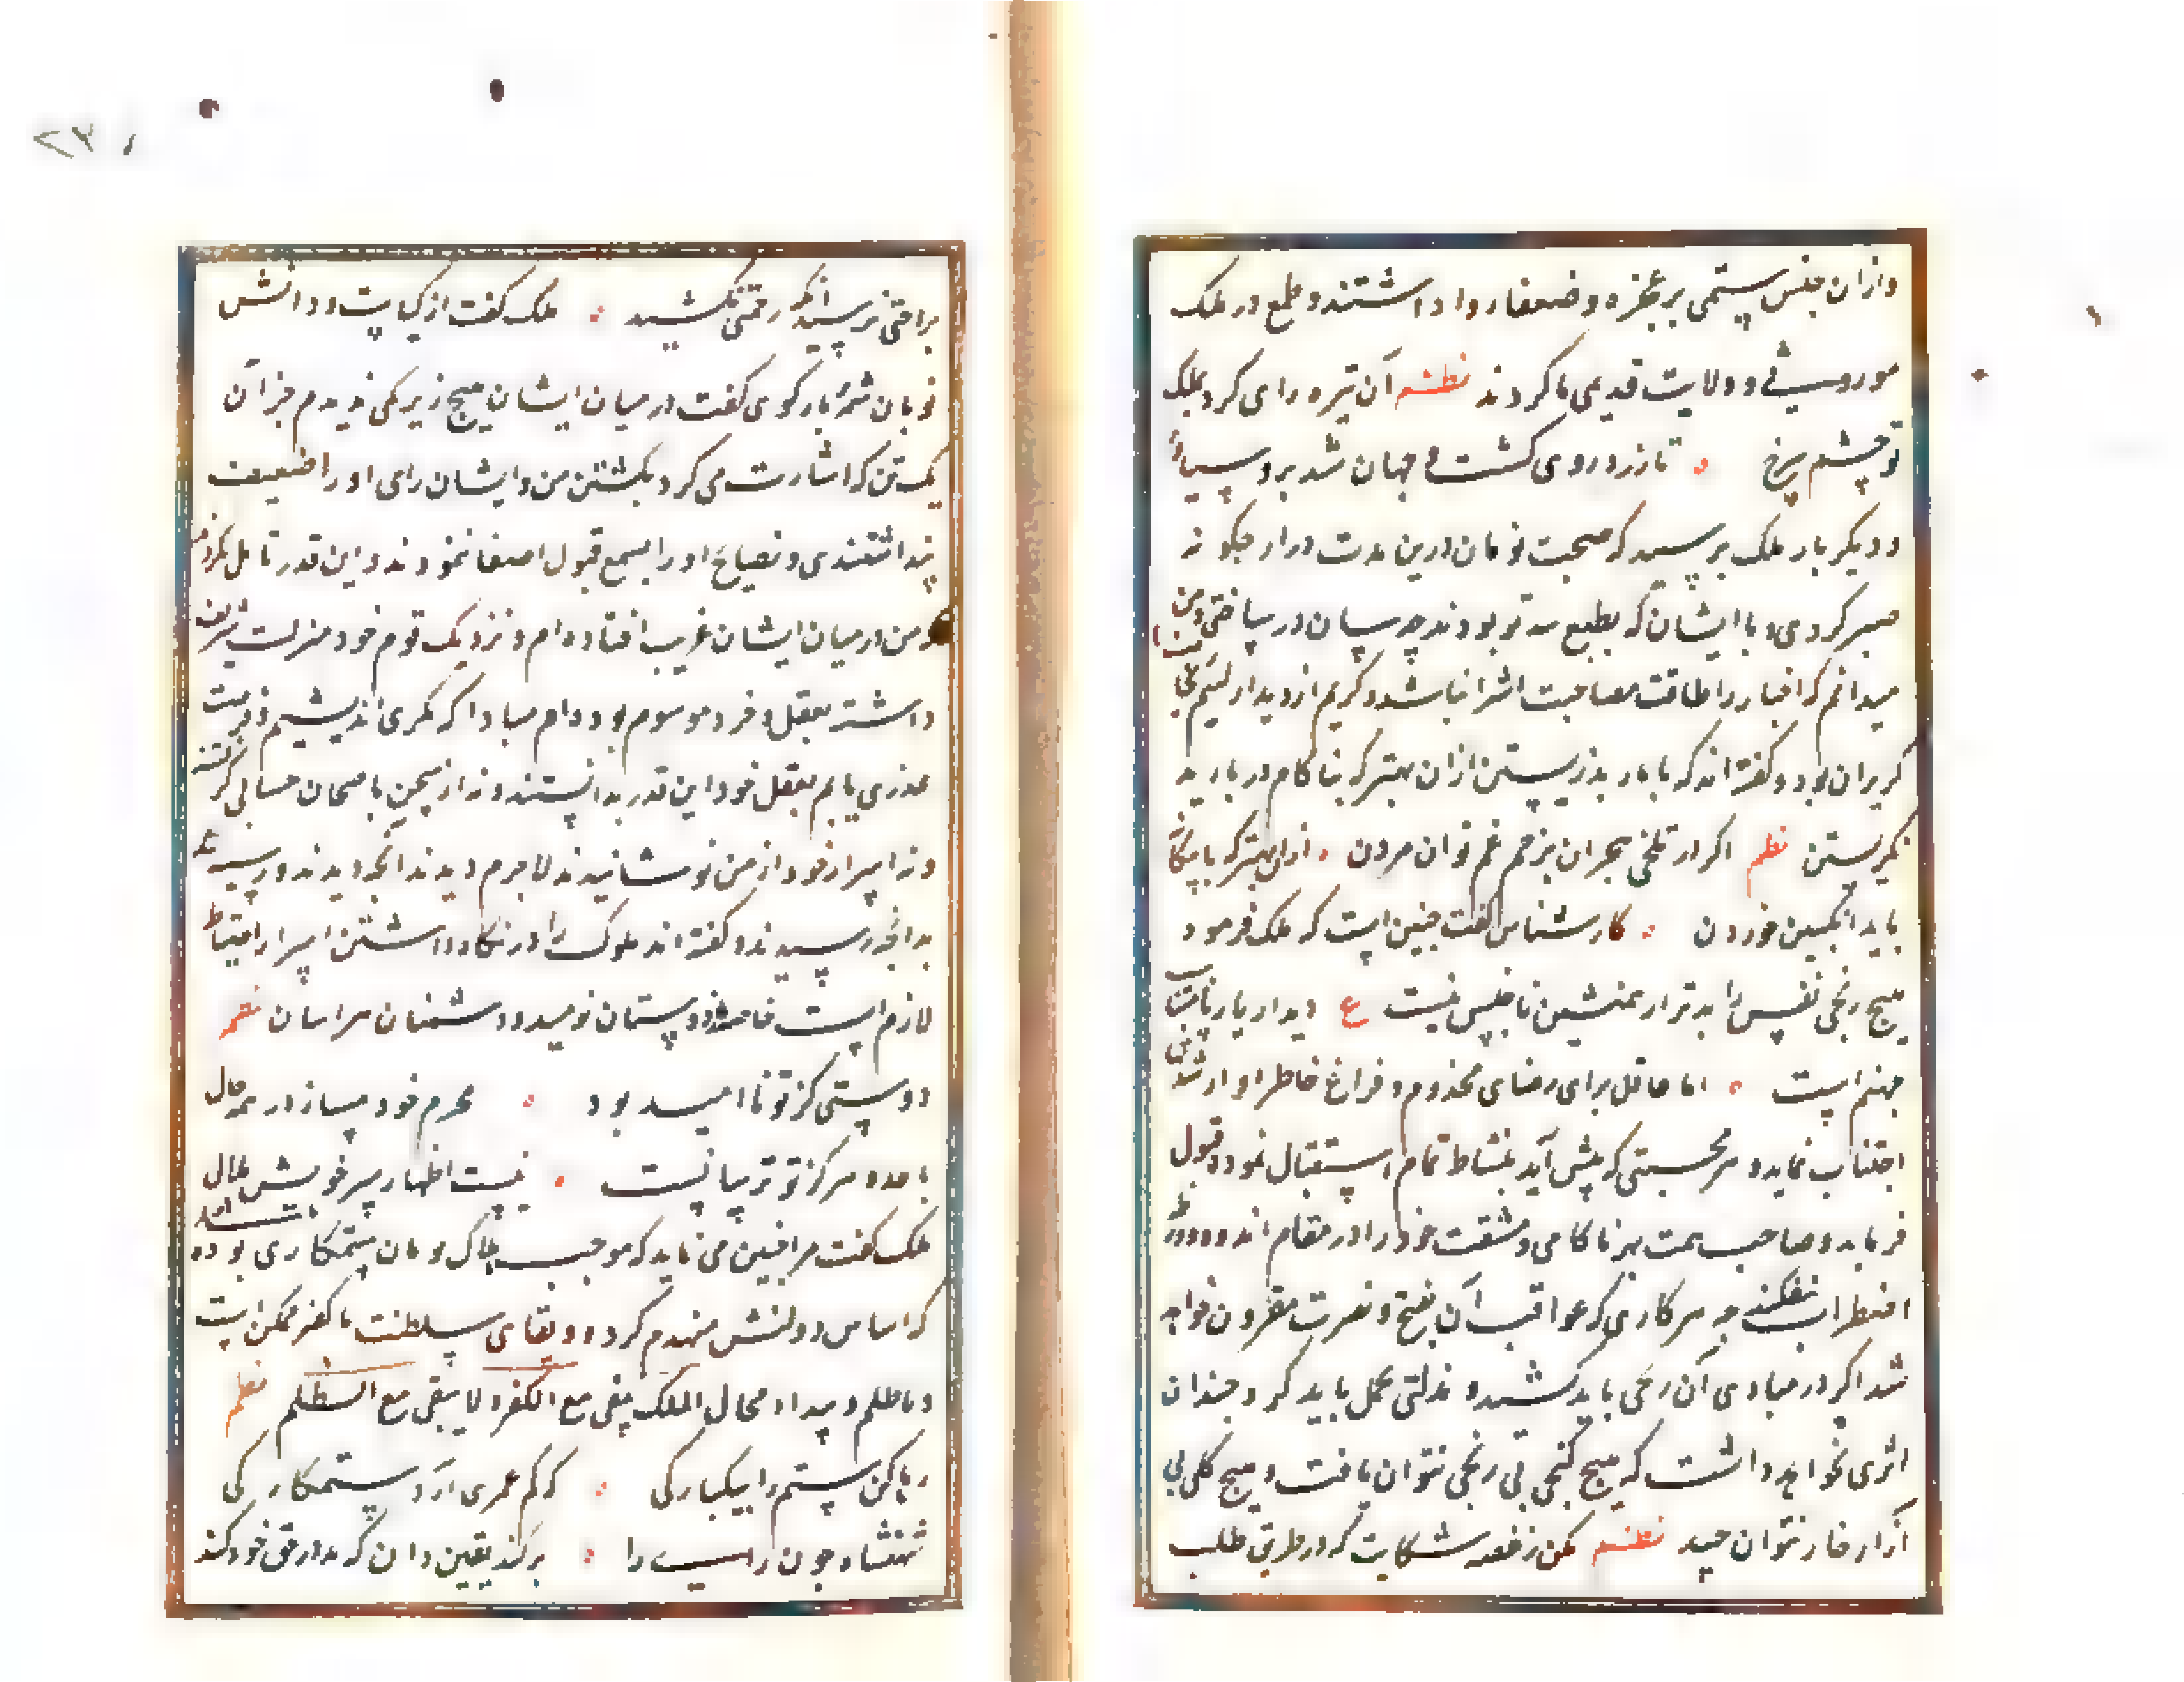 وازان جنس ستمی بر عجزه و ضعفا روا داشتند و طمع در ملک
موروثی و ولایت قدیمی ما کردند نظم آن تیره رای کرد بملک
تو چشم سرخ تا زرد روی کشت و جهان شد برو سیاه
و دیکر بار ملک پرسید که صحبت بومان درین مدت دراز چکونه
صبر کردی و با ایشان که بطبع ضد تو بودند چه سان در ساختی و من
میدانم که اخیار را طاقت مصاحبت اشرار نباشد و کریم از دیدار لئیم
کریزان بود و کفته اند که با مار بد زیستن ازان بهتر که بناکام در یار بد
نکریستن نظم اکر از تلخی هجران بزخم غم توان مردن ازان بهتر که با بیکانه
باید انکبین خوردن کارشناس کفت چنین است که ملک فرمود
هیچ رنجی نفس را بدتر از همنشین ناجنس نیست ع دیدار یار نامناسب
جهنم است اما عاقل برای رضای مخدوم و فراغ خاطر او از شداید
اجتناب ننماید و هر محنتی که پیش آید بنشاط تمام استقبال نموده قبول
فرماید و صاحب همت بهر ناکامی و مشقت خود را در مقام اندوه و
اضطراب نیفکند چه هر کاری که عواقب آن بفتح و نصرت مقرون خواهد
شد اکر در مبادی آن رنجی باید کشید و مذلتی تحمل باید کرد چندان
اثری نخواهد داشت که هیچ کنجی بی رنجی نتوان یافت و هیچ کلی بی
آزار خار نتوان چید نظم مکن ز غصه شکایت که در طریق طلب
براحتی نرسید آنکه زحمتی نکشید ملک کفت از کیاست و دانش
بومان شمه باز کوی کفت در میان ایشان هیچ زیرکی ندیدم جز آن
یک تن که اشارت می کرد بکشتن من و ایشان رای او را ضعیف
پنداشتندی و نصایح او را بسمع قبول اصغا ننمودند و این قدر تامل نکردند
که من در میان ایشان غریب افتاده ام و نزدیک قوم خود منزلت شریف
داشته بعقل و خرد موسوم بوده ام مبادا که مکری اندیشم و فرصت
غدری یابم بعقل خود این قدر بدانستند و نه از سخن ناصحان حسابی کرفتند
و نه اسرار خود از من پوشانیدند لاجرم دیدند آنچه دیدند و رسید
بدانچه رسیدند و کفته اند ملوک را در نکاه داشتن اسرار احتیاط
لازم است خاصه از دوستان نومید و دشمنان هراسان نظم
دوستی کز تو ناامید بود محرم خود مساز در همه حال
با عدو هر کز تو ترسانست نیست اظهار سر خویش
ملک کفت مرا چنین می نماید که موجب هلاک بومان ستمکاری بوده
که اساس دولتش منهدم کردد و بقای سلطنت با کفر ممکن است
و با ظلم و بیداد محال الملک یبقی مع الکفر و لا یبقی مع الظلم نظم
رها کن ستم را بیکبارکی که کم عمری آرد ستمکارکی
شهنشاه چون راسی را برکند یقین دان که بد در حق خود کند